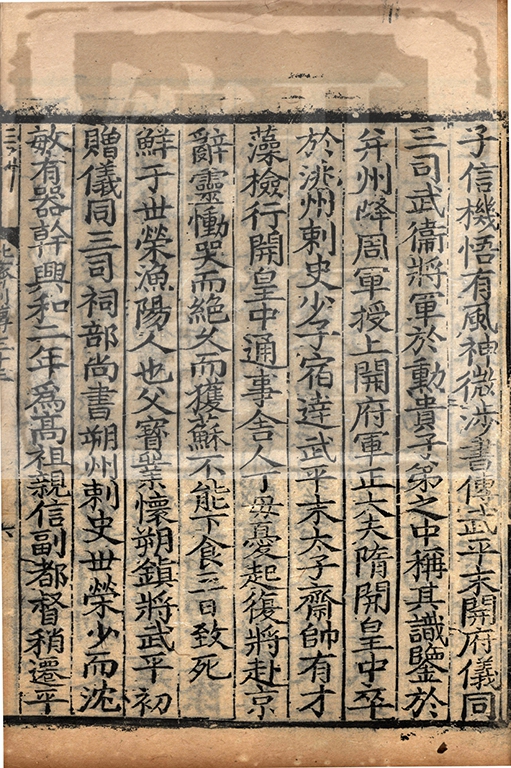 子信機悟有風神微涉書傳武平末開府儀同
三司武衞將軍於勳貴子弟之中稱其識鑒於
并州降周軍授上開府軍正大夫隋開皇中卒
於洮州刺史少子宿達武平末太子齋帥有才
藻檢行開皇中通事舍人丁母憂起復將赴京
辭靈慟哭而絕久而獲蘇不能下食三日致死
鮮于世榮漁陽人也父寶業懷朔鎮將武平初
贈儀同三司祠部尚書朔州刺史世榮少而沈
敏有器幹興和二年爲高祖親信副都督稍遷平